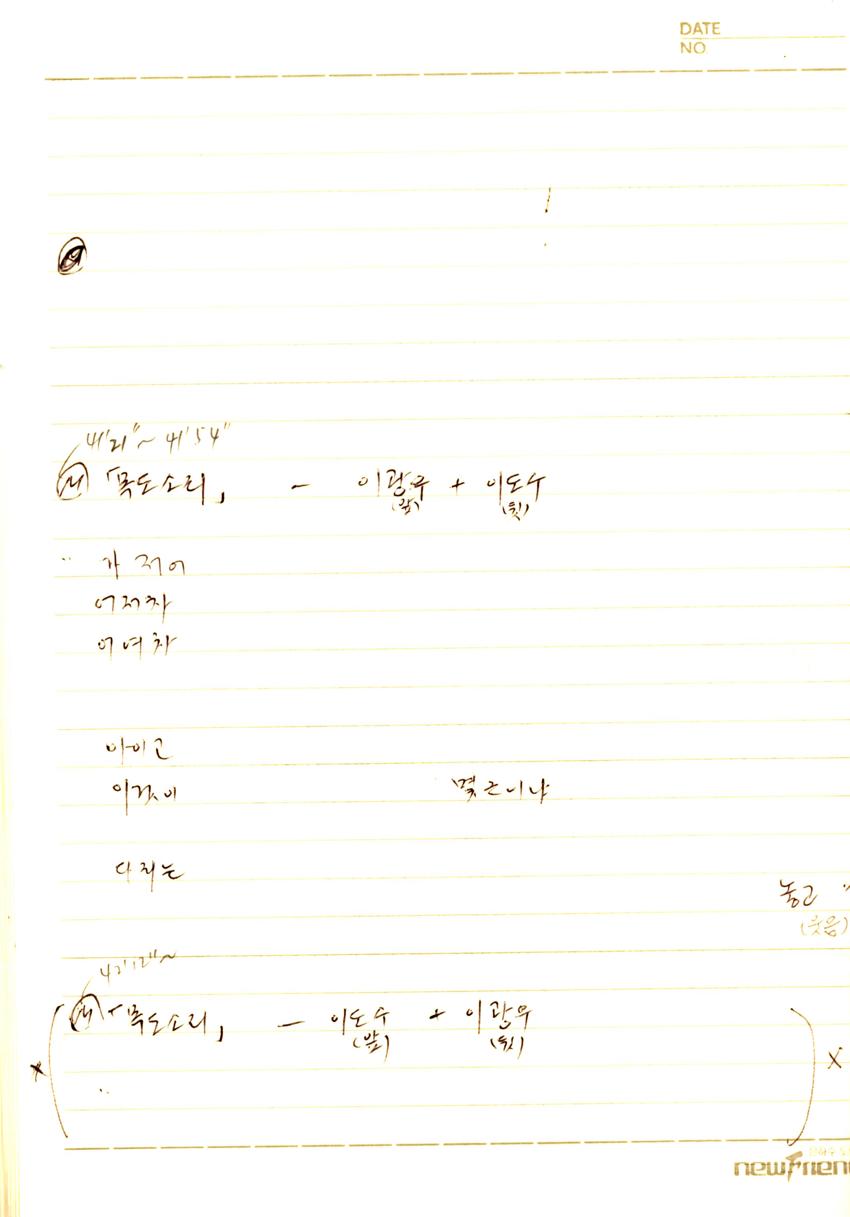 DATE
NO
41'21"~ 41'54"
「목도소리」 - 이광우 + 이도수
(앞) (뒷)
" 가 저어
어저차
어여차
아이고
이것이 몇근이냐
다치는
놓고 "
(웃음)
42'12"~
「목도소리」 - 이도수 + 이광우
(앞) (뒷)
"
newfrien